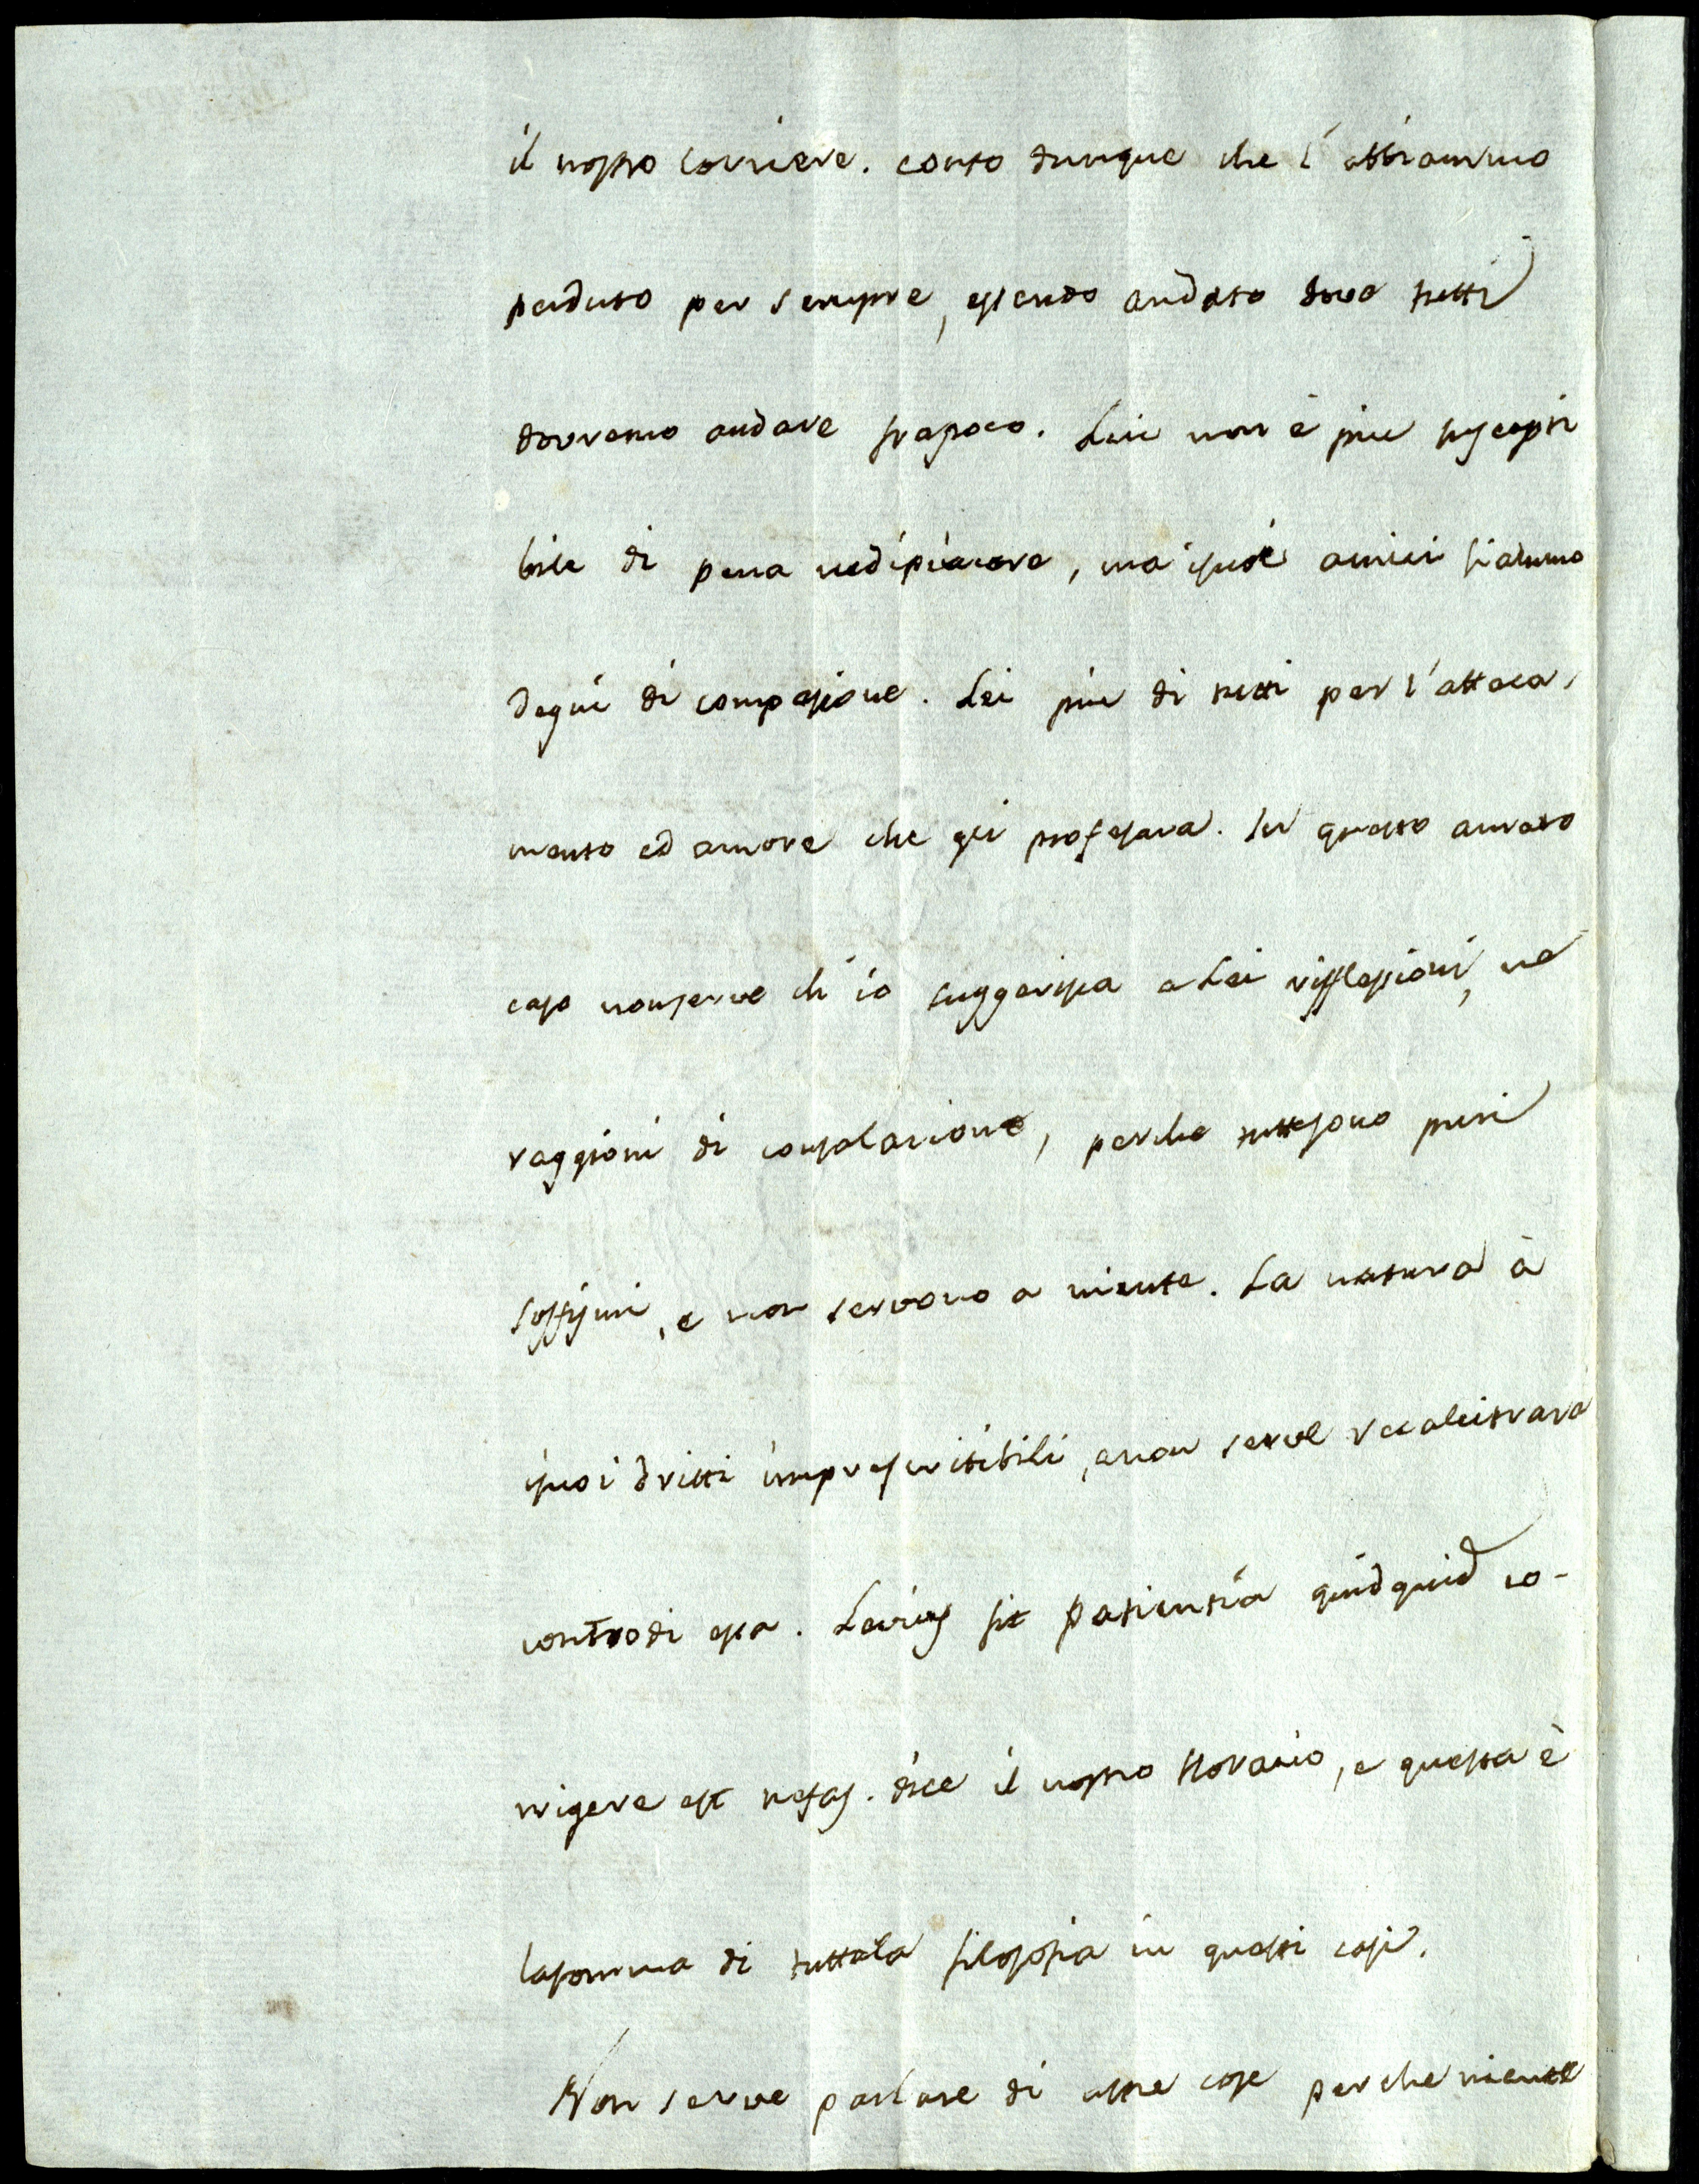 il nostro corriere. conto dunque che l'abbiammo
perduto per sempre, essendo andato dove tutti
dovremo andare frapoco. Lui non è piu suscepti
bile di pena nedipiacere, ma isuoi amici siammo
degni di compassione. Lei piu di tutti per l'attaca,
mento ed amore che gli professava. In questo amaro
caso nonserve ch'io suggerisca a Lei riflessioni, ne
raggioni di consolazione, perche tuttesono puri
soffismi, e non servono a niente. La natura à
isuoi dritti imprescritibili, enon serve recalcitrare
controdi essa. Levius fit patientia quidquid co-
rrigere est nefas. dice il nostro Horazio, e questa è
lasomma di tuttala filosofia in questi casi.
Non serve parlare di altre cose perche niente